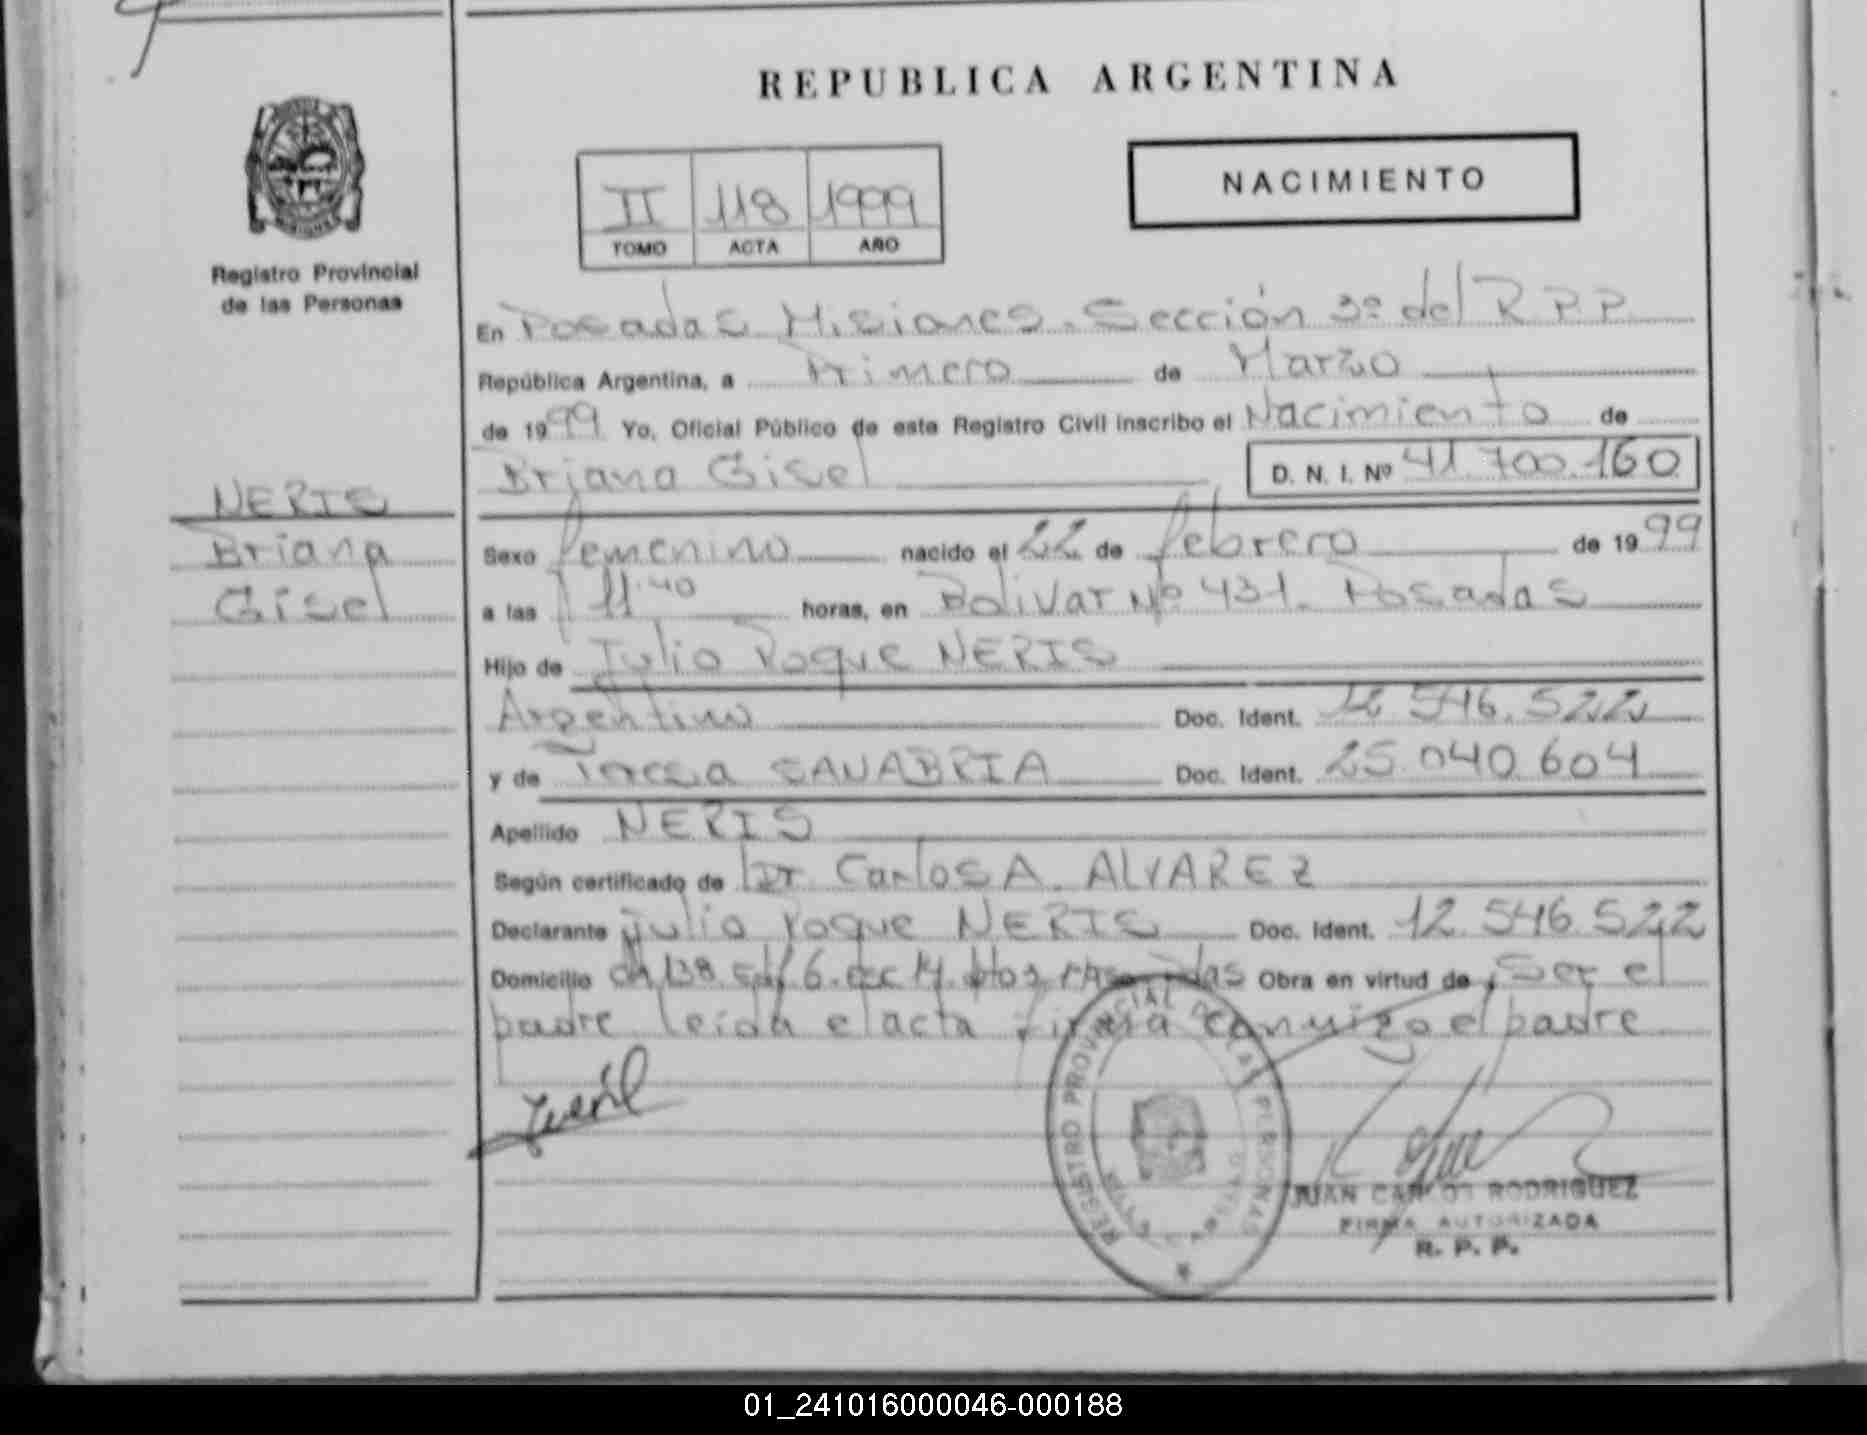 REPUBLICA ARGENTINA
NACIMIENTO
II 118 1999
TOMO ACTA AÑO
Registro Provincial
de las Personas
En Posadas Misiones. Sección 3º del R P P
República Argentina, a Primero de Marzo
de 1999 Yo, Oficial Público de este Registro Civil inscribo el Nacimiento de
Briana Gisel D. N. I. Nº 41.700.160
NERIS
Briana
Gisel
Sexo femenino nacido el 22 de febrero de 1999
a las 11.40 horas, en Bolivar Nº 431. Posadas
Hijo de Julio Roque NERIS
Argentino Doc. Ident. 12.546.522
y de Teresa SANABRIA Doc. Ident. 25.040.604
Apellido NERIS
Según certificado de Dr. Carlos A. ALVAREZ
Declarante Julio Roque NERIS Doc. Ident. 12.546.522
Domicilio ch 138 edf 6. Pdas Obra en virtud de Ser el
padre leida el acta firma conmigo el padre
REGISTRO PROVINCIAL DE LAS PERSONAS
JUAN CARLOS RODRIGUEZ
FIRMA AUTORIZADA
R. P. P.
01_241016000046-000188